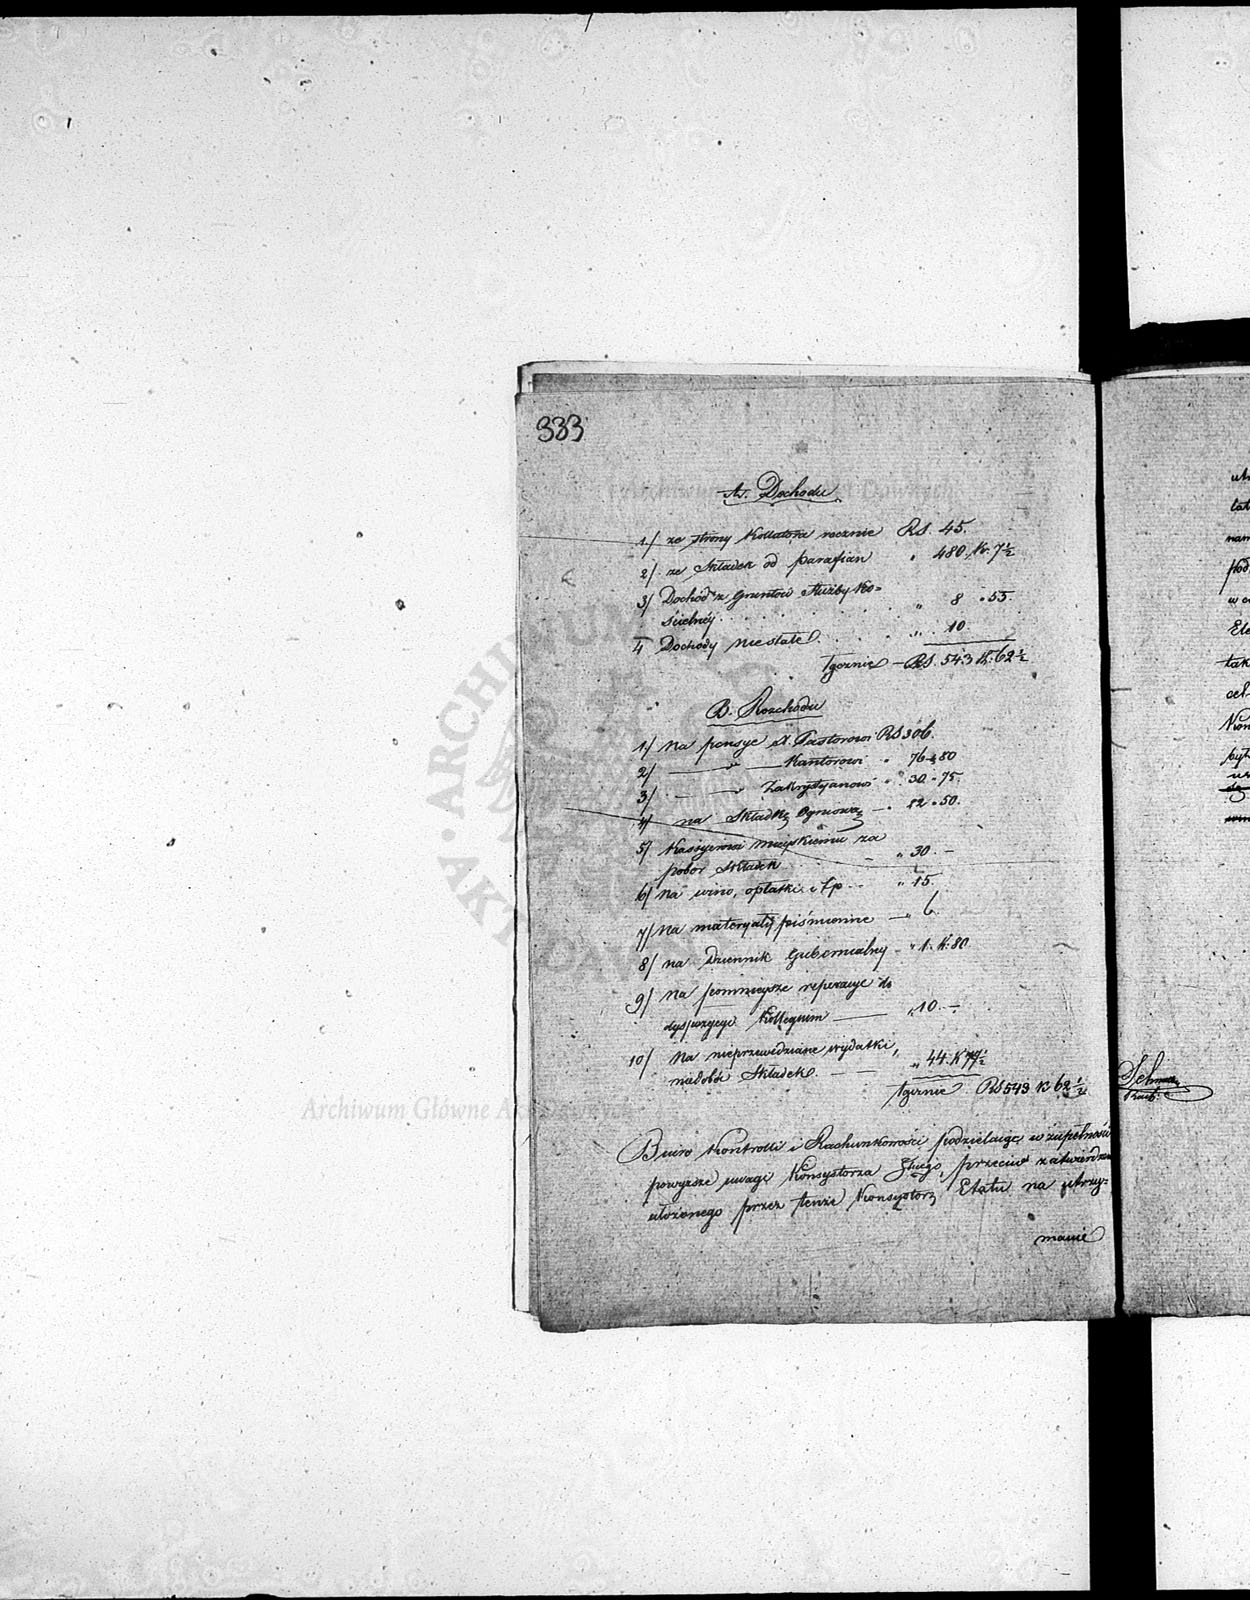 333
A. Dochodu
1./ ze strony Kollatora rocznie RS. 45.
2/. ze Składek od parafian " 480. K. 7½
3/ Dochód z gruntów Służby Ko=
ścielnéj . . . . " 8 " 55
4 Dochody niestałe . . . . " 10.
Łącznie — RS. 543 K. 62½
B. Rozchodu
1/ Na pensye X. Pastorowi RS 306.
2/ — " — Kantorowi " 76 " 50
3/ — " — Zakrystyanowi " 30 " 75.
4/ na Składkę Ogniową — " 12 " 50.
5/ Kassyerowi miejskiemu za
pobór Składek — " 30. —
6/ Na wino, opłatki i t p — " 15.
7/ Na materyały piśmienne — " 6.
8/ na Dziennik Gubernialny — " 1. K. 80.
9/ Na pomniejsze reperacye do
dyspozycyi Kollegium — " 10. —
10/ Na nieprzewidziane wydatki,
niedobór Składek. — — " 44. K 77½
Łącznie RS 543 K 62½
Biuro Kontrolli i Rachunkowości podzielając w zupełności
powyższe uwagi Konsystorza przeciw
ułożonego przez tenże Konsystorz Etatu na utrzy=
manie
Archiwum Główne Akt Dawnych